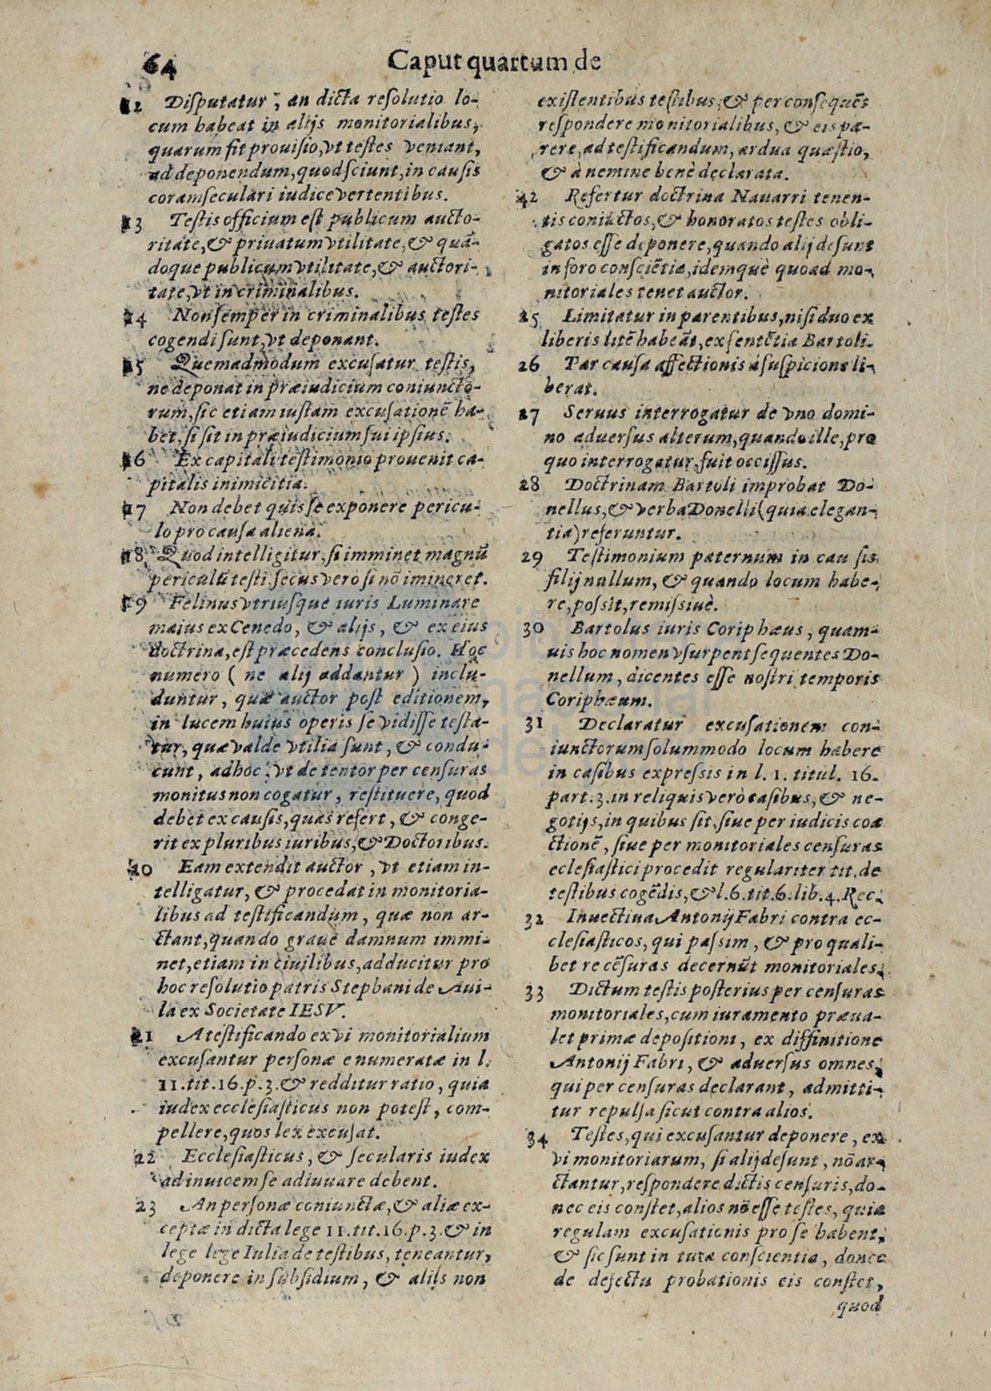 64
Caput quartum de
12 Disputatur, an dicta resolutio lo-
cum habeat in alijs monitorialibus,
quarum fit prouisio, vt testes veniant,
ad deponendum, quod sciunt, in causis
coram seculari iudice vertentibus.
13 Testis officium est publicum aucto-
ritate, & priuatum vtilitate, & quā-
doque publicum vtilitate, & auctori-
tate, vt in criminalibus.
14 Non semper in criminalibus testes
cogendi sunt, vt deponant.
15 Quemadmodum excusatur testis,
ne deponat in præiudicium coniuncto-
rum, sic etiam iustam excusationē ha-
bet, si sit in præiudicium sui ipsius.
16 Ex capitali testimonio prouenit ca-
pitalis inimicitia.
17 Non debet quis se exponere pericu-
lo pro causa aliena.
18 Quod intelligitur, si imminet magnū
periculū testi, secus vero si nō imineret.
19 Felinus vtriusque iuris Luminare
maius ex Cenedo, & alijs, & ex eius
doctrina, est præcedens conclusio. Hoc
numero ( ne alij addantur ) inclu-
duntur, quæ auctor post editionem,
in lucem huius operis se vidisse testa-
tur, quæ valde vtilia sunt, & condu-
cunt, adhoc, vt detentor per censuras
monitus non cogatur, restituere, quod
debet ex causis, quas refert, & conge-
rit ex pluribus iuribus, & Doctoribus.
20 Eam extendit auctor, vt etiam in-
telligatur, & procedat in monitoria-
libus ad testificandum, quæ non ar-
ctant, quando graue damnum immi-
net, etiam in ciuilibus, adducitur pro
hoc resolutio patris Stephani de Aui-
la ex Societate IESV.
21 A testificando ex vi monitorialium
excusantur personæ enumeratæ in l.
11. tit. 16. p. 3. & redditur ratio, quia
iudex ecclesiasticus non potest, com-
pellere, quos lex excusat.
22 Ecclesiasticus, & secularis iudex
ad inuicem se adiuuare debent.
23 An personæ coniunctæ, & aliæ ex-
ceptæ in dicta lege 11. tit. 16. p. 3. & in
lege lege Iulia de testibus, teneantur,
deponere in subsidium, & alijs non
existentibus testibus, & per consequēs
respondere monitorialibus, & eis pa-
rere, ad testificandum, ardua quæstio,
& à nemine benè declarata.
42 Refertur doctrina Nauarri tenen-
tis coniūctos, & honoratos testes obli-
gatos esse deponere, quando alij desunt
in foro consciētiæ, idemquè quoad mo-
nitoriales tenet auctor.
25 Limitatur in parentibus, nisi duo ex
liberis litē habeāt, ex sentētia Bartoli.
26 Par causa affectionis à suspicione li-
berat.
27 Seruus interrogatur de vno domi-
no aduersus alterum, quando ille, pro
quo interrogatur, fuit occissus.
28 Doctrinam Bartoli improbat Do-
nellus, & verba Donelli (quia elegan-
tia) referuntur.
29 Testimonium paternum in cau sis
filij nullum, & quando locum habe-
re, possit, remissiuè.
30 Bartolus iuris Coriphæus, quam-
uis hoc nomen vsurpent sequentes Do-
nellum, dicentes esse nostri temporis
Coriphæum.
31 Declaratur excusationem con-
iunctorum solummodo locum habere
in casibus expressis in l. 1. titul. 16.
part. 3. in reliquis verò casibus, & ne-
gotijs, in quibus sit, siue per iudicis coa
ctionē, siue per monitoriales censuras
ecclesiastici procedit regulariter tit. de
testibus cogēdis, & l. 6. tit. 6. lib. 4. Rec.
32 Inuectiua Antonij Fabri contra ec-
clesiasticos, qui passim, & pro quali-
bet re cēsuras decernūt monitoriales.
33 Dictum testis posterius per censuras
monitoriales, cum iuramento præua-
let primæ depositioni, ex diffinitione
Antonij Fabri, & aduersus omnes,
qui per censuras declarant, admitti-
tur repulsa sicut contra alios.
34 Testes, qui excusantur deponere, ex
vi monitoriarum, si alij desunt, nō ar-
ctantur, respondere dictis censuris, do-
nec eis constet, alios nō esse testes, quia
regulam excusationis pro se habent,
& sic sunt in tuta conscientia, donec
de defectu probationis eis constet,
quod